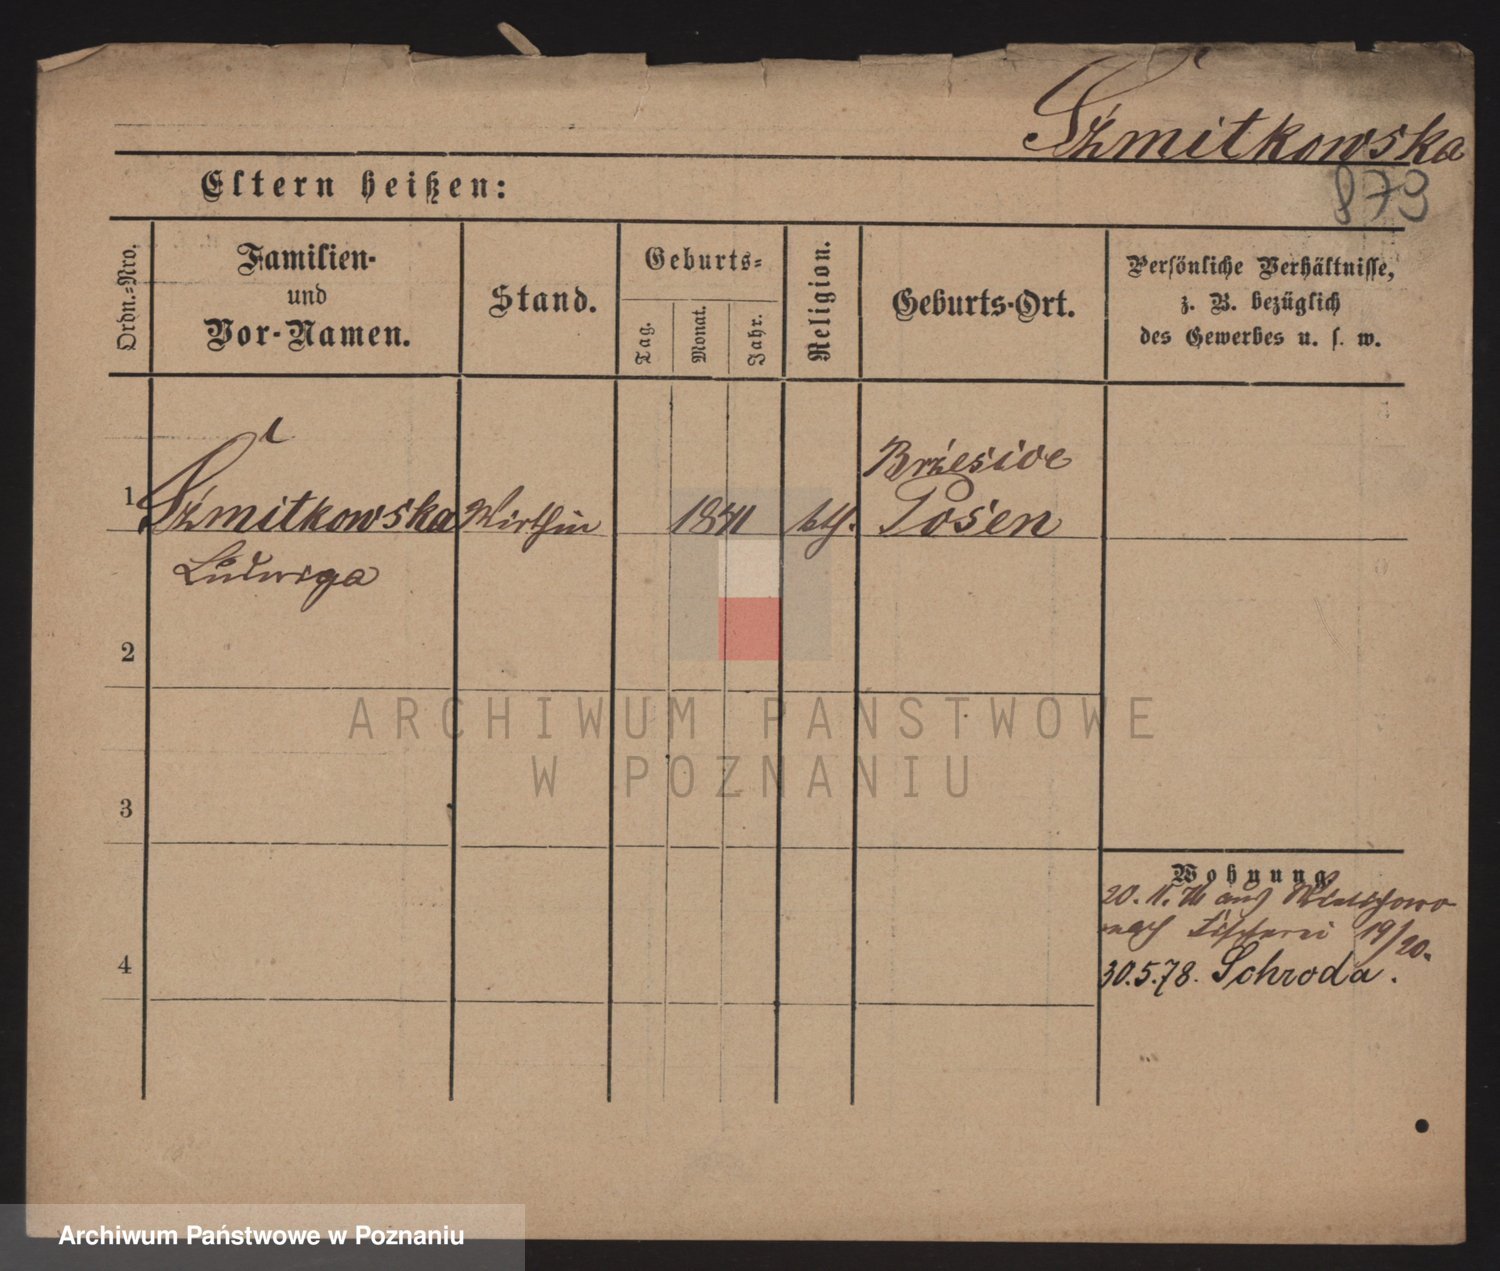 Śźmitkowska
873
Eltern heißen:
Ordn.=Nro.
Familien-
und
Vor-Namen.
Stand.
Geburts=
Tag.
Monat.
Jahr.
Religion.
Geburts-Ort.
Persönliche Verhältnisse,
z. B. bezüglich
des Gewerbes u. s. w.
1
Śźmitkowska
Ludwiga
Wirthin
kth.
Posen
2
3
4
ARCHIWUM PAŃSTWOWE
W POZNANIU
Wohnung
20. aus
nach Fischerei 19/20.
30.5.78. Schroda.
Archiwum Państwowe w Poznaniu